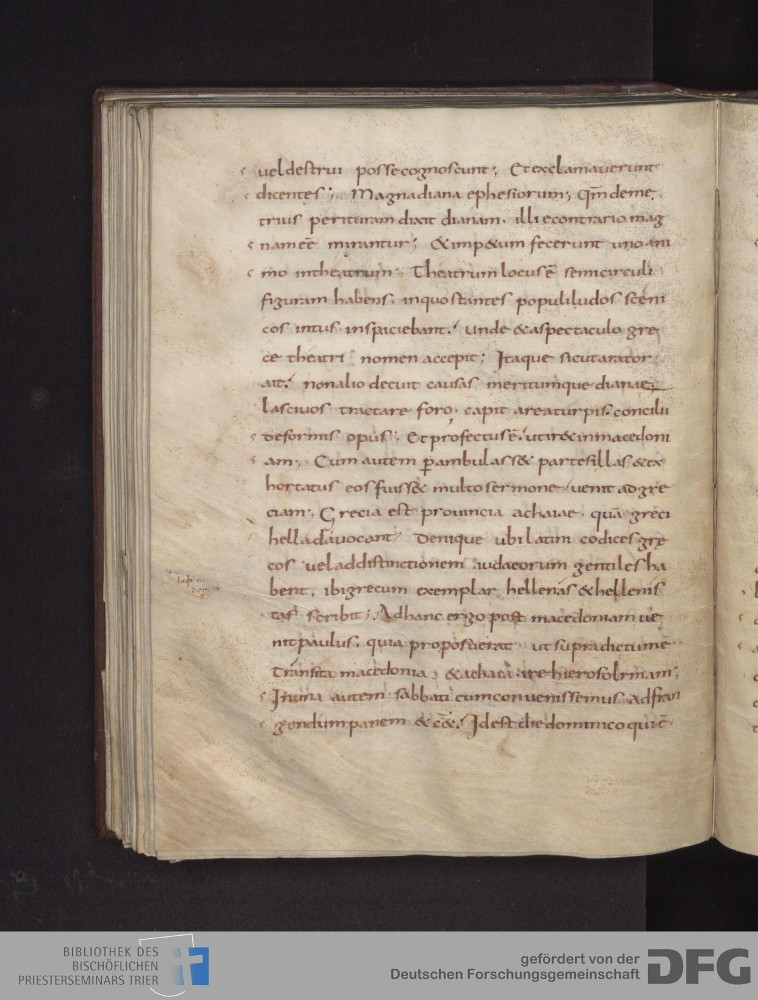 uel destrui posse cognoscunt; Et exclamauerunt
dicentes; Magna diana ephesiorum; qm̄ deme
trius perituram dixit dianam. illi econtrario mag
nam eē mirantur; & imp&um fecerunt uno ani
mo in theatrum; Theatrum locus ē semicirculi
figuram habens. in quo stantes populi ludos sceni
cos intus inspiciebant. unde & a spectaculo grę
ce theatri nomen accepit; Itaque sicut arator
ait. non alio decuit causas meritumque dianae
lasciuos tractare foro. capit area turpis. concilii
deformis opus; Et profectus ē. ut ir& in macedoni
am; Cum autem p̄ambulass& partes illas & ex
hortatus eos fuiss& multo sermone uenit ad gre
ciam; Grecia est prouincia achaiae. quā greci
helladā uocant. Denique ubi latini codices grę
cos uel ad distinctionem iudaeorum gentiles ha
bent. ibi grecum exemplar hellenas & hellenis
tas scribit; Ad hanc ergo post macedoniam ue
nit paulus. quia proposuerat ut supra dictum ē
transita macedonia & achaia ire hierosolimam;
In una autem sabbati cum conuenissemus ad fran
gendum panem & c&; Id est die dominico qui ē
BIBLIOTHEK DES
BISCHÖFLICHEN
PRIESTERSEMINARS TRIER
gefördert von der
Deutschen Forschungsgemeinschaft
DFG